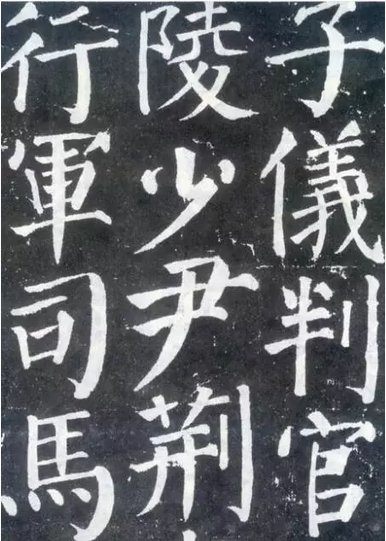 子儀判官
陵少尹荆
行軍司馬